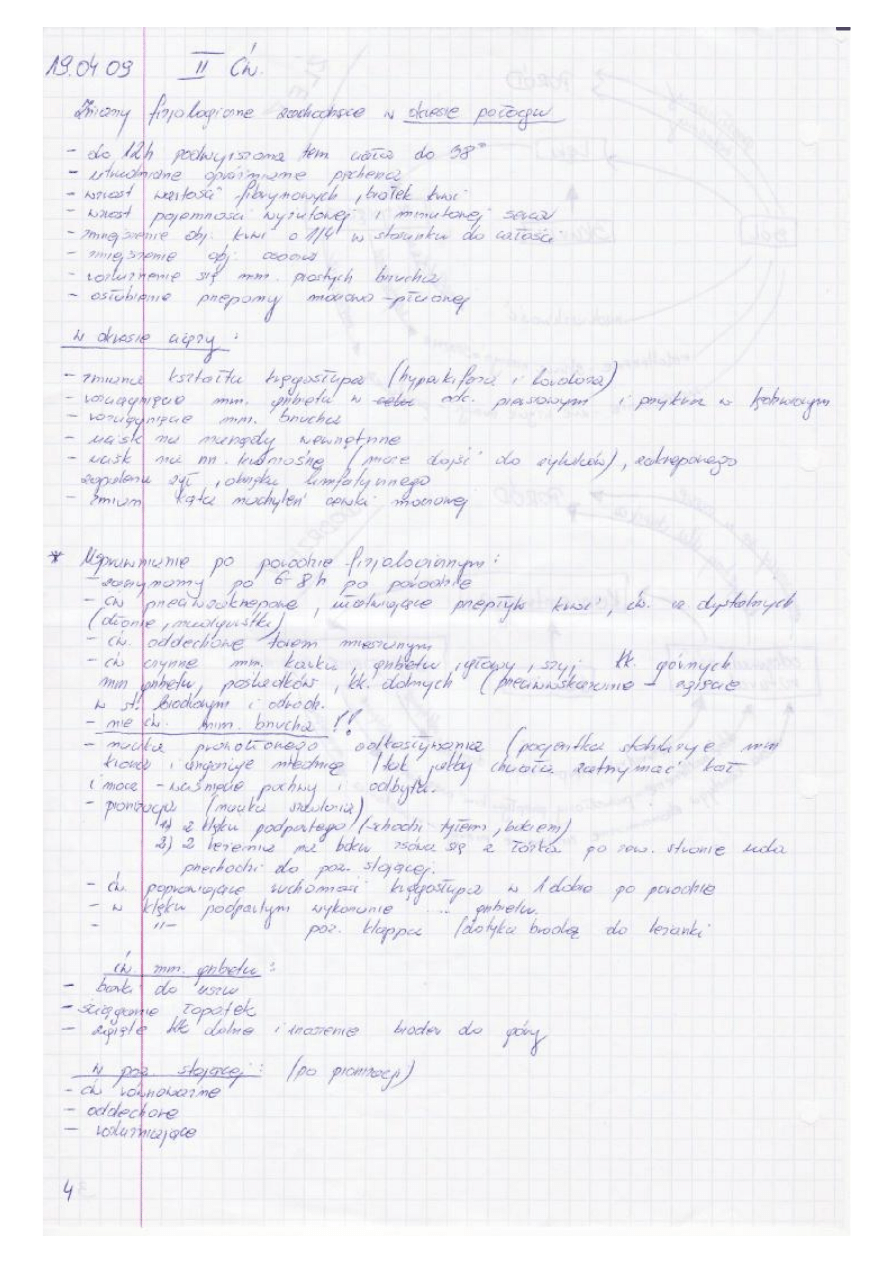 19.04 09 II Ćw.
Zmiany fizjologiczne zachodzące w okresie połogu
- do 12h podwyższona tem ciała do 38°
- utrudnione opróżnianie pęcherza
- wzrost wartości fibrynowych, białek krwi
- wzrost pojemności wyrzutowej i minutowej serca
- zmniejszenie obj. krwi o 1/4 w stosunku do całości
- zmniejszenie obj. osocza
- rozluźnienie się mm. prostych brzucha
- osłabienie przepony moczowo-płciowej
w okresie ciąży :
- zmiana kształtu kręgosłupa (hyperkifoza i lordoza)
- rozciągnięcie mm. grzbietu w odc. piersiowym i przykurcz w lędźwiowym
- rozciągnięcie mm. brzucha
- ucisk na narządy wewnętrzne
- ucisk na nn. krwionośne (może dojść do żylaków), zakrzepowego
zapalenia żył, obrzęku limfatycznego
- zmiana kąta nachyleń cewki moczowej
* Usprawnianie po porodzie fizjologicznym :
- zaczynamy po 6-8h po porodzie
- ćw przeciwzakrzepowe, ułatwiające przepływ krwi, ćw. cz dystalnych
(dłonie, nadgarstki)
- ćw. oddechowe torem mieszanym
- ćw czynne mm. karku, grzbietu, głowy, szyi kk. górnych
mm grzbietu, pośladków, kk. dolnych (przeciwwskazanie - zgięcie
w st. biodrowym i odwodz.
- nie ćw. mm. brzucha !!
- nauka prawidłowego odkasływania (pacjentka stabilizuje mm
krocza i angażuje miednicę /tak jakby chciała zatrzymać kał
i mocz - zwarcie pochwy i odbytu.
- pionizacja (nauka siadania)
1) z klęku podpartego (schodzi tyłem, bokiem)
2) z leżenia na boku zsuwa się z łóżka po zew. stronie uda
przechodzi do poz. stojącej.
- ćw poprawiające ruchomość kręgosłupa w 1 dobie po porodzie
- w klęku podpartym wykonanie ... grzbietu.
- -"- poz. klappa (dotyka brodą do leżanki
ćw. mm. grzbietu :
- barki do uszu
- ściąganie łopatek
- zgięte kk dolne i unoszenie bioder do góry
w poz. stojącej : (po pionizacji)
- ćw równoważne
- oddechowe
- rozluźniające
4